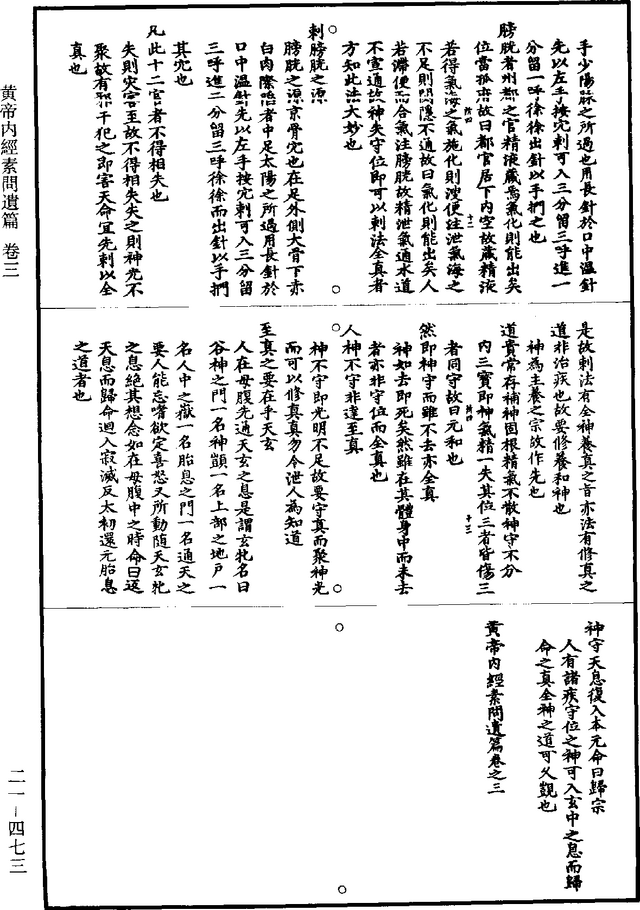 手少陽脉之所過也用長針於口中温針
先以左手按穴刺可入三分留三呼進一
分留一呼徐徐出針以手捫之也
膀胱者州都之官精液藏焉氣化則能出矣
位當孤府故曰都官居下内空故藏精液
若得氣海之氣施化則溲便注泄氣海之
不足則閟隱不通故曰氣化則能出矣人
若滯便而合氣注膀胱故精泄氣通水道
不宣通故神失守位即可以刺法全真者
方知此法大妙也
刺膀胱之源
膀胱之源京骨穴也在足外側大骨下赤
白肉際陷者中足太陽之所過用長針於
口中温針先以左手按穴刺可入三分留
三呼進二分留三呼徐徐而出針以手捫
其穴也
凡此十二官者不得相失也
失則灾害至故不得相失失之則神光不
聚故有邪干犯之即害天命宜先刺以全
真也
是故刺法有全神養真之旨亦法有修真之
道非治疾也故要修養和神也
神為主養之宗故作先也
道貴常存補神固根精氣不散神守不分
内三寶即神氣精一失其位三者皆傷三
者同守故曰元和也
然即神守而雖不去亦全真
神如去即死矣然雖在其體身中而来去
者亦非守位而全真也
人神不守非達至真
神不守即光明不足故要守真而聚神光
而可以修真真勿令泄人為知道
至真之要在乎天玄
人在母腹先通天玄之息是謂玄牝名曰
谷神之門一名神顗一名上部之地戶一
名人中之嶽一名胎息之門一名通天之
要人能忘嗜欲定喜怒又所動随天玄牝
之息絕其想念如在母腹中之時命曰返
天息而歸命迴入寂滅反太初還元胎息
之道者也
神守天息復入本元命曰歸宗
人有諸疾守位之神可入玄中之息而歸
命之真全神之道可久觀也
黄帝内經素問遺篇卷之三
黄帝内經素問遺篇 卷三
二一－四七三